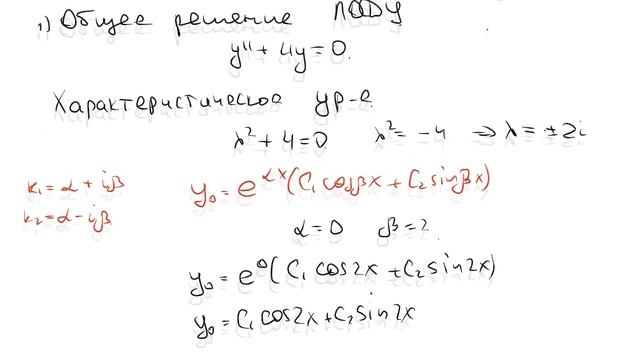 1) Общее решение ЛОДУ
y'' + 4y = 0.
Характеристическое ур-е
λ² + 4 = 0 λ² = -4 ⇒ λ = ±2i
k₁ = α + iβ
k₂ = α - iβ
y₀ = e^{αx}(C₁ cosβx + C₂ sinβx)
α = 0 β = 2.
y₀ = e⁰(C₁ cos2x + C₂ sin2x)
y₀ = C₁ cos2x + C₂ sin2x